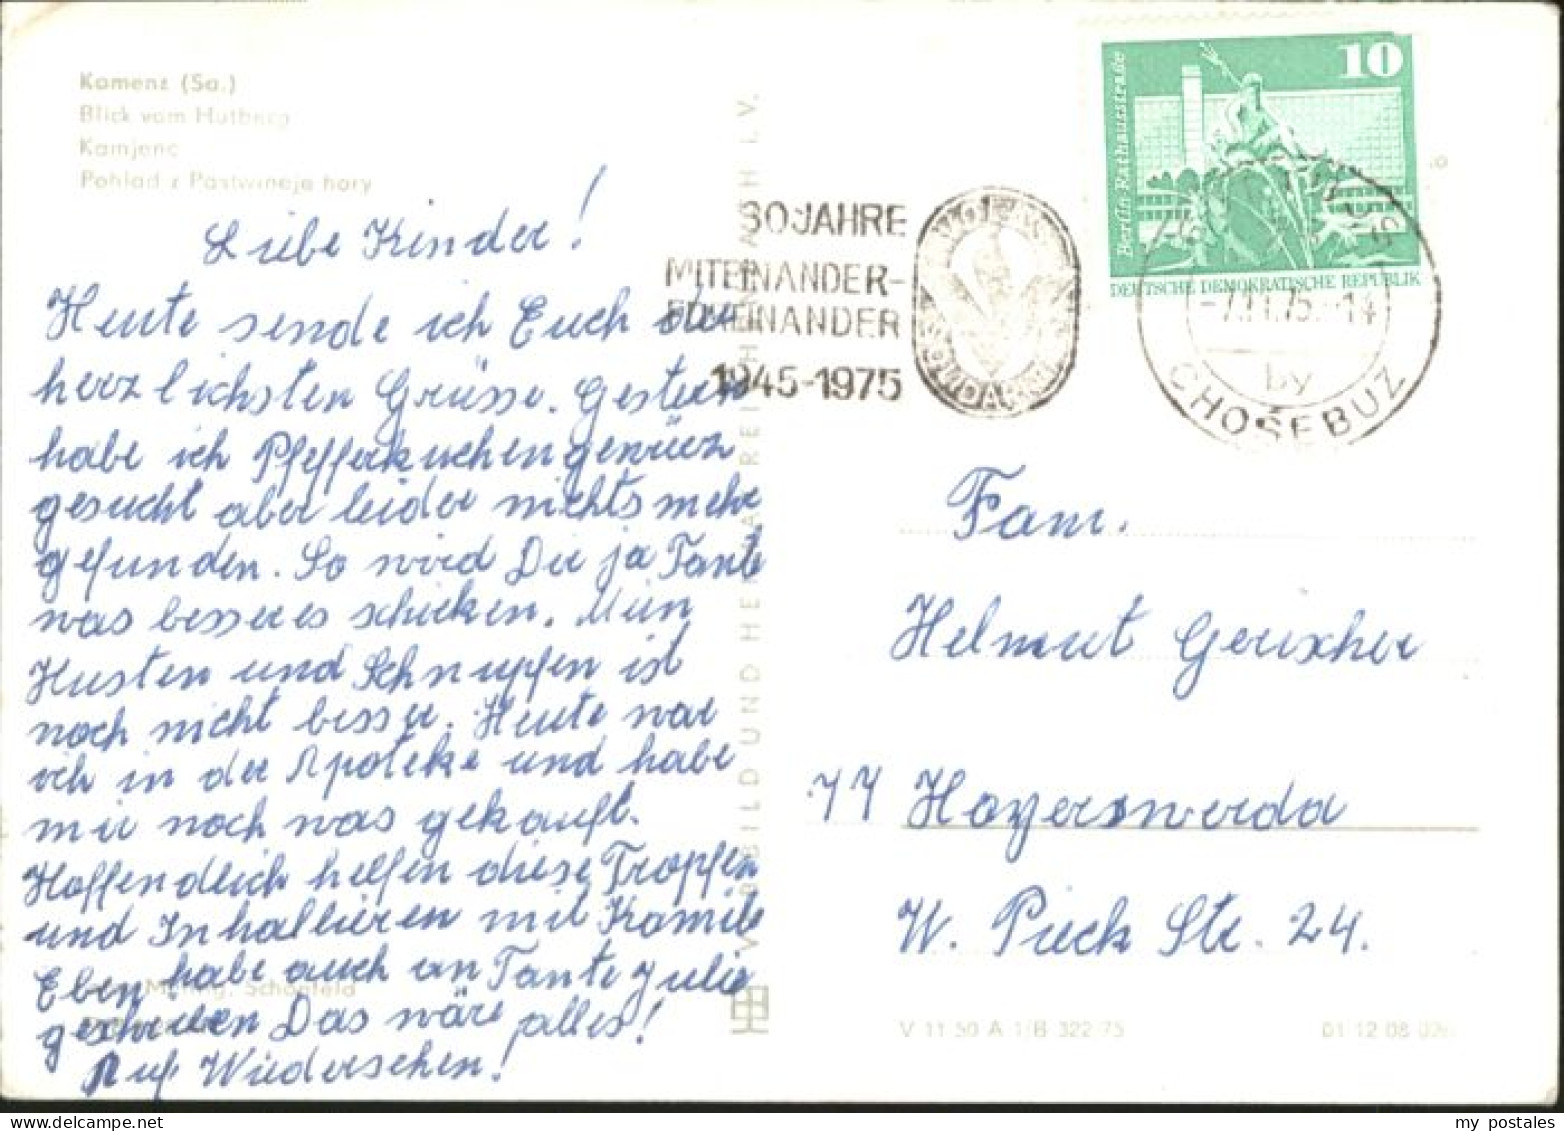 Kamenz (Sa.)
Blick vom Hutberg
Kamjenc
Pohlad z Pastwineje hory
Liebe Kinder!
Heute sende ich Euch die
herzlichsten Grüsse. Gestern
habe ich Pfefferkuchengewürz
gesucht aber leider nichts mehr
gefunden. So wird Die ja Tante
was besseres schicken. Mein
Husten und Schnupfen ist
noch nicht besser. Heute war
ich in der Apoteke und habe
mir noch was gekauft.
Hoffendlich helfen diese Tropfen
und Inhallieren mit Kamile
Eben habe auch an Tante Julie
geschrieben Das wäre alles!
Auf Wiedersehen!
Schönfeld
VEB BILD UND HEIMAT REICHENBACH I. V.
30 JAHRE
MITEINANDER-
FÜREINANDER
1945-1975
10
Berlin, Rathausstraße
DEUTSCHE DEMOKRATISCHE REPUBLIK
-7.11.75.-14
by
CHOŚEBUZ
Fam.
Helmut Gerischer
77 Hoyerswerda
W. Pieck Str. 24.
V 11 50 A 1/B 322 75
01 12 08 026
my postales